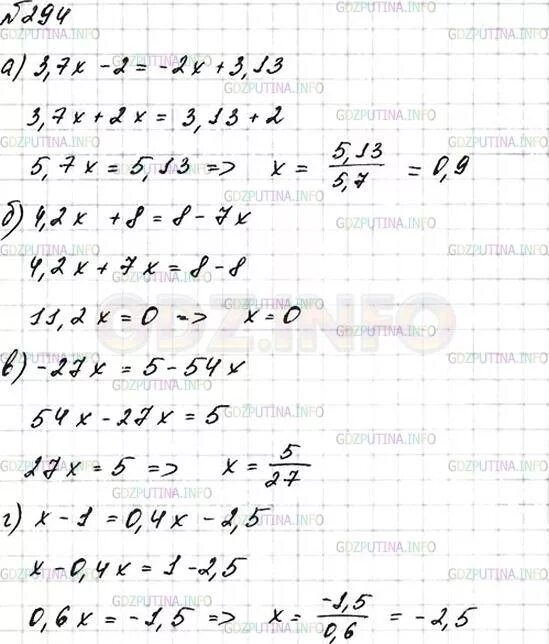 №294
а) 3,7x - 2 = -2x + 3,13
3,7x + 2x = 3,13 + 2
5,7x = 5,13 => x = 5,13/5,7 = 0,9
б) 4,2x + 8 = 8 - 7x
4,2x + 7x = 8 - 8
11,2x = 0 => x = 0
в) -27x = 5 - 54x
54x - 27x = 5
27x = 5 => x = 5/27
г) x - 1 = 0,4x - 2,5
x - 0,4x = 1 - 2,5
0,6x = -1,5 => x = -1,5/0,6 = -2,5
GDZ.INFO
GDZPUTINA.INFO